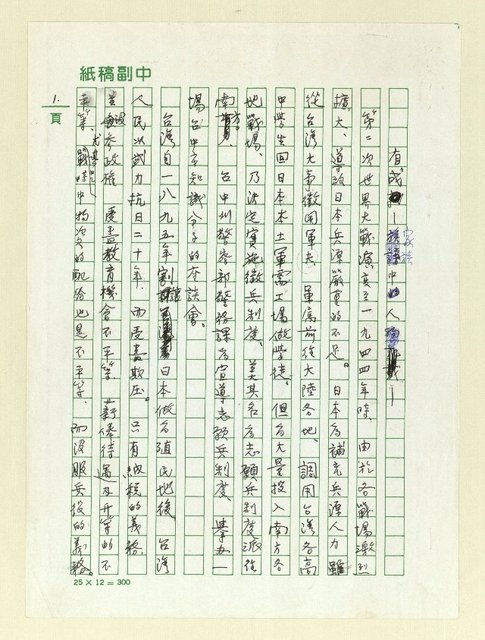 中副稿紙
有感—
第二次世界大戰演變至一九四四年時 由於各戰場激烈
擴大、導致日本兵源嚴重的不足。日本為補充兵源人力 雖
從台灣大事徵用軍夫、軍屬前往大陸各地、調用台灣各高
中學生回日本本土軍需工場做學徒。但為大量投入南方各
地戰場、乃決定實施徵兵制度、美其名為志願兵制度派往
南方 台中州警務部警務課為宣導志願兵制度、舉
場台中市知識分子的座談會。
台灣自一八九五年割讓日本做為殖民地後、台灣
人民以武力抗日二十年、而受盡欺壓。只有納稅的義務
沒參政權、受盡教育機會不平等、薪俸待遇及升等的不
平等、尤其 戰時中物資的配給也是不平等、而沒服兵役的義務。
1.頁
25 X 12 = 300